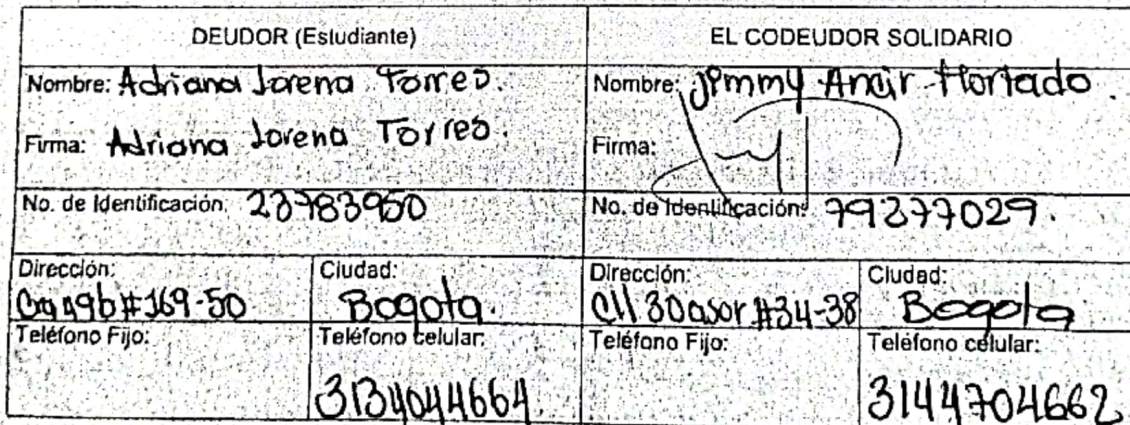 DEUDOR (Estudiante)
EL CODEUDOR SOLIDARIO
Nombre: Adriana Lorena Torres.
Nombre: Jimmy Amir Hortado.
Firma: Adriana Lorena Torres.
Firma:
No. de Identificación: 23783950
No. de Identificación: 79377029.
Dirección:
Cra 49b #169-50
Ciudad:
Bogota.
Dirección:
Cll 30a sor #34-38
Ciudad:
Bogota
Teléfono Fijo:
Teléfono celular:
3134044664
Teléfono Fijo:
Teléfono celular:
3144704662